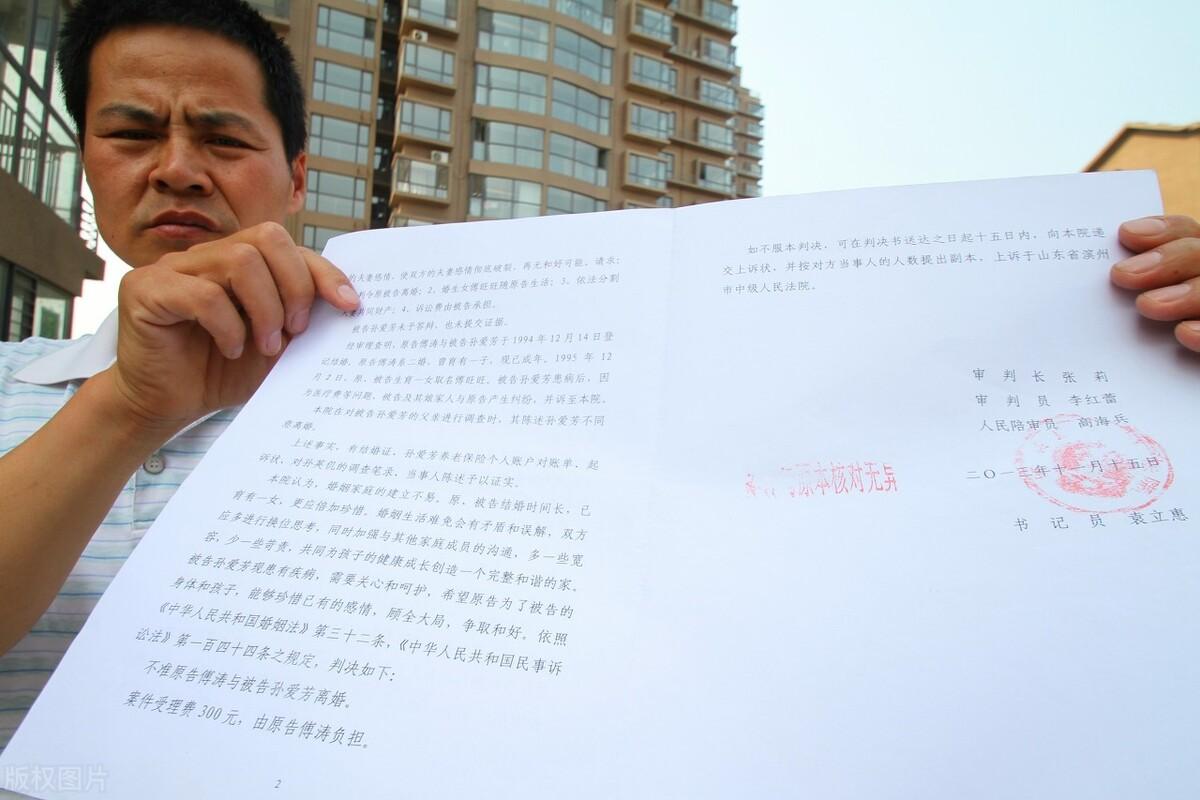 的夫妻感情，使双方的夫妻感情彻底破裂，再无和好可能，请求：
判令原被告离婚；2、婚生女傅旺旺随原告生活；3、依法分割
夫妻共同财产；4、诉讼费由被告承担。
被告孙爱芳未予答辩，也未提交证据。
经审理查明，原告傅涛与被告孙爱芳于1994年12月14日登
记结婚，原告傅涛系二婚，曾育有一子，现已成年。1995年12
月2日，原、被告生育一女取名傅旺旺。被告孙爱芳患病后，因
为医疗费等问题，被告及其娘家人与原告产生纠纷，并诉至本院。
本院在对被告孙爱芳的父亲进行调查时，其陈述孙爱芳不同
意离婚。
上述事实，有结婚证、孙爱芳养老保险个人账户对账单、起
诉状，对孙英的调查笔录，当事人陈述予以证实。
本院认为，婚姻家庭的建立不易，原、被告结婚时间长，已
育有一女，更应倍加珍惜。婚姻生活难免会有矛盾和误解，双方
应多进行换位思考，同时加强与其他家庭成员的沟通，多一些宽
容，少一些苛责，共同为孩子的健康成长创造一个完整和谐的家。
被告孙爱芳现患有疾病，需要关心和呵护，希望原告为了被告的
身体和孩子，能够珍惜已有的感情，顾全大局，争取和好。依照
《中华人民共和国婚姻法》第三十二条，《中华人民共和国民事诉
讼法》第一百四十四条之规定，判决如下：
不准原告傅涛与被告孙爱芳离婚。
案件受理费300元，由原告傅涛负担。
2
如不服本判决，可在判决书送达之日起十五日内，向本院递
交上诉状，并按对方当事人的人数提出副本，上诉于山东省滨州
市中级人民法院。
审 判 长 张 莉
审 判 员 李红蕾
人民陪审员 高海兵
二〇一三年十一月十五日
原本核对无异
书 记 员 袁立惠
版权图片